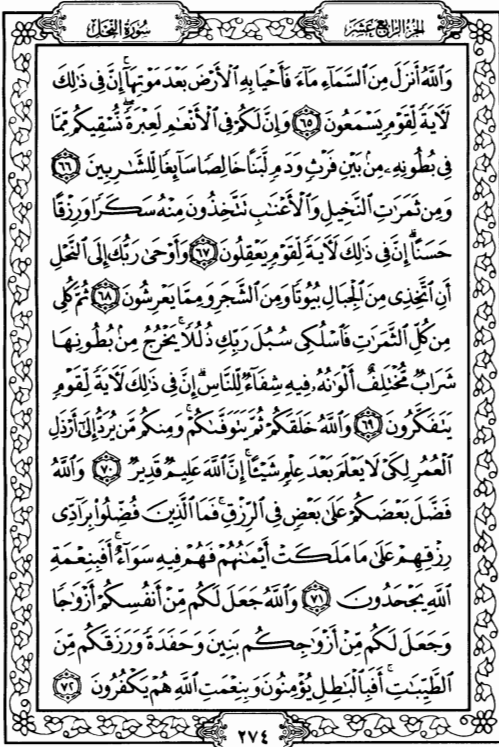 سُورَةُ النَّحْلِ
الجُزْءُ الرَّابِعَ عَشَرَ
وَٱللَّهُ أَنزَلَ مِنَ ٱلسَّمَآءِ مَآءً فَأَحْيَا بِهِ ٱلْأَرْضَ بَعْدَ مَوْتِهَآ ۚ إِنَّ فِى ذَٰلِكَ
لَـَٔايَةً لِّقَوْمٍ يَسْمَعُونَ ٦٥ وَإِنَّ لَكُمْ فِى ٱلْأَنْعَٰمِ لَعِبْرَةً ۖ نُّسْقِيكُم مِّمَّا
فِى بُطُونِهِۦ مِنۢ بَيْنِ فَرْثٍ وَدَمٍ لَّبَنًا خَالِصًا سَآئِغًا لِّلشَّٰرِبِينَ ٦٦
وَمِن ثَمَرَٰتِ ٱلنَّخِيلِ وَٱلْأَعْنَٰبِ تَتَّخِذُونَ مِنْهُ سَكَرًا وَرِزْقًا
حَسَنًا ۗ إِنَّ فِى ذَٰلِكَ لَـَٔايَةً لِّقَوْمٍ يَعْقِلُونَ ٦٧ وَأَوْحَىٰ رَبُّكَ إِلَى ٱلنَّحْلِ
أَنِ ٱتَّخِذِى مِنَ ٱلْجِبَالِ بُيُوتًا وَمِنَ ٱلشَّجَرِ وَمِمَّا يَعْرِشُونَ ٦٨ ثُمَّ كُلِى
مِن كُلِّ ٱلثَّمَرَٰتِ فَٱسْلُكِى سُبُلَ رَبِّكِ ذُلُلًا ۚ يَخْرُجُ مِنۢ بُطُونِهَا
شَرَابٌ مُّخْتَلِفٌ أَلْوَٰنُهُۥ فِيهِ شِفَآءٌ لِّلنَّاسِ ۗ إِنَّ فِى ذَٰلِكَ لَـَٔايَةً لِّقَوْمٍ
يَتَفَكَّرُونَ ٦٩ وَٱللَّهُ خَلَقَكُمْ ثُمَّ يَتَوَفَّىٰكُمْ ۚ وَمِنكُم مَّن يُرَدُّ إِلَىٰٓ أَرْذَلِ
ٱلْعُمُرِ لِكَىْ لَا يَعْلَمَ بَعْدَ عِلْمٍ شَيْـًٔا ۚ إِنَّ ٱللَّهَ عَلِيمٌ قَدِيرٌ ٧٠ وَٱللَّهُ
فَضَّلَ بَعْضَكُمْ عَلَىٰ بَعْضٍ فِى ٱلرِّزْقِ ۚ فَمَا ٱلَّذِينَ فُضِّلُوا۟ بِرَآدِّى
رِزْقِهِمْ عَلَىٰ مَا مَلَكَتْ أَيْمَٰنُهُمْ فَهُمْ فِيهِ سَوَآءٌ ۚ أَفَبِنِعْمَةِ
ٱللَّهِ يَجْحَدُونَ ٧١ وَٱللَّهُ جَعَلَ لَكُم مِّنْ أَنفُسِكُمْ أَزْوَٰجًا
وَجَعَلَ لَكُم مِّنْ أَزْوَٰجِكُم بَنِينَ وَحَفَدَةً وَرَزَقَكُم مِّنَ
ٱلطَّيِّبَٰتِ ۚ أَفَبِٱلْبَٰطِلِ يُؤْمِنُونَ وَبِنِعْمَتِ ٱللَّهِ هُمْ يَكْفُرُونَ ٧٢
٢٧٤